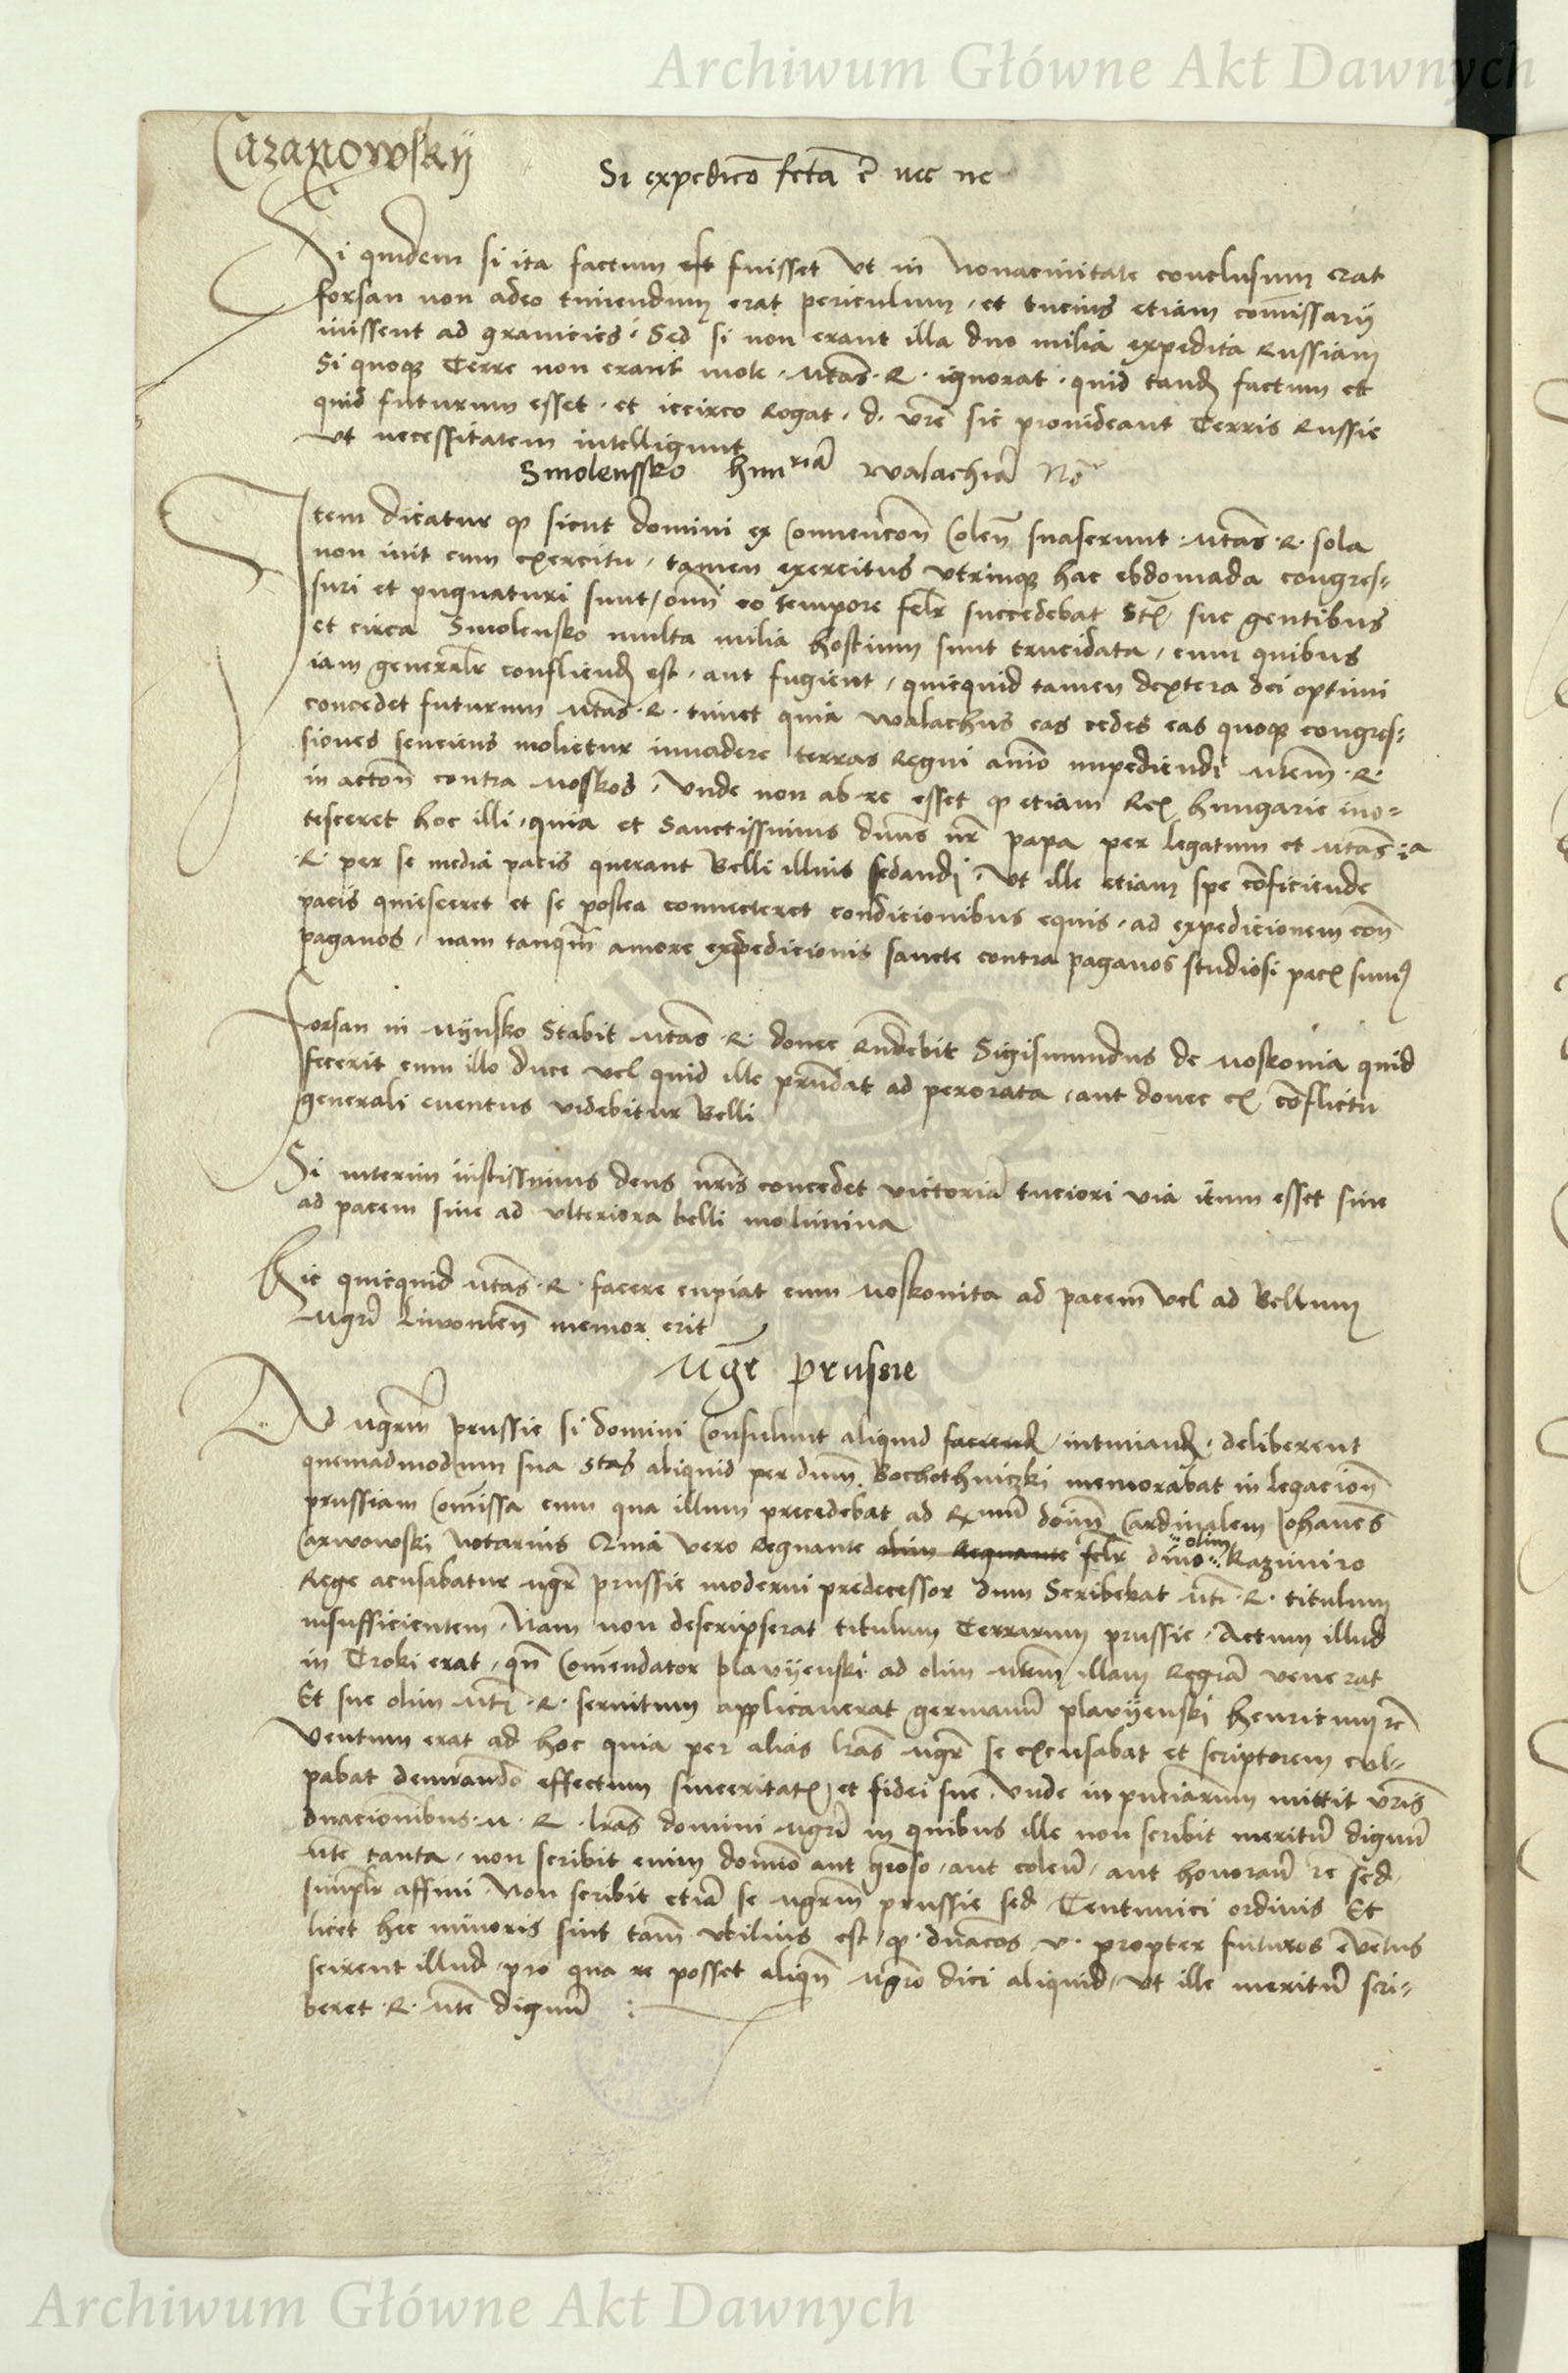 Archiwum Główne Akt Dawnych
Cazanowskij
Si expedicō fctā ē nec ne
Si quidem si ita factum est fuisset Vt in Nouaciuitate conclusum erat
forsan non adeo timendum erat periculum, et tucius etiam comissarij
iuissent ad granicies. Sed si non erant illa duo milia expedita Russiam
Si quoque Terre non erant mote. Mtas. R. ignorat. quid tand factum et
quid futurum esset. et iccirco Rogat. d. vre sic prouideant Terris Russie
vt necessitatem intelligunt
Smolenssko hunriā walachiā Nō
Item dicatur q sicut domini ex Conuencōn Colen suaserunt. Mtas. R. sola
non iuit cum exercitu, tamen exercitus vtrinque hac ebdomada congres=
suri et pugnaturi sunt, omī eo tempore felr succedebat Stī sue gentibus
et circa Smolensko multa milia hostium sunt trucidata, cum quibus
iam generalr confliend est, aut fugient, quicquid tamen dextera dei optimi
concedet futurum Mtas. R. timet quia walachus eas cedes eas quoque congres=
siones senciens molietur inuadere terras Regni animo impediendi Mtem. R.
in actōn contra Moskos, Vnde non ab re esset q etiam Rex hungarie ino=
tesceret hoc illi, quia et Sanctissimus dnus nr papa per legatum et Mtas ia
R. per se media pacis querant Belli illius sedandi, Vt ille etiam spe conficiende
pacis quiesceret et se postea connecteret condicionibus equis, ad expedicionem con
paganos, nam tanqm amore expedicionis sancte contra paganos studiosi pacis sumus
Forsan in Mynsko Stabit Mtas. R. donec Rndebit Sigismundus de Moskouia quid
fecerit cum illo duce vel quid ille prndat ad perorata, aut donec ex conflictu
generali euentus videbitur Belli
Si interim iustissimus deus nris concedet victoriā tuciori via itum esset siue
ad pacem siue ad vlteriora belli molimina
Hic quicquid Mtas. R. facere cupiat cum Moskouita ad pacem Vel ad Bellum
Mgri Liwonien memor erit
Mgr prussie
Ad Mgrm prussie si domini Consulunt aliquid faciend, intimand. deliberent
quemadmodum sua Stas aliquid per dnm Bochothniczki memorabat in legacion
prussiam Comissa cum qua illum precedebat ad Rmū doīm Cardinalem Johanes
Carwowski Notarius Quia vero Regnante olim Regnante felr olim diuo Kazimiro
Rege acusabatur Mgr prussie moderni predecessor dum Scribebat Mti. R. titulum
insufficientem, Nam non descripserat titulum Terrarum prussie, Actum illud
in Troki erat, qn Comendator plawyenski ad olim Mtem illam Regiā venerat
Et sue olim Mti. R. seruitum applicauerat germanū plawyenski henricum rc
Ventum erat ad hoc quia per alias lras Mgr se excusabat et scriptorem cul=
pabat demrando effectum sinceritatis et fidei sue. Vnde in pnciarum mittit vris
dnacionibus. M. R. lras domini Mgri in quibus ille non scribit meritū dignū
Mte tanta, non scribit enim domīo aut groso, aut colen, aut honoran re sed
simplr affini, Non scribit etiā se Mgrm prussie sed Teutunici ordinis Et
licet hec minoris sint tam vtilius est, q. dnacōs v. propter futuros euentus
scirent illud, pro qua re posset aliqn Mgro dici aliquid, vt ille meritū scri=
beret. R. Mte dignū
Archiwum Główne Akt Dawnych